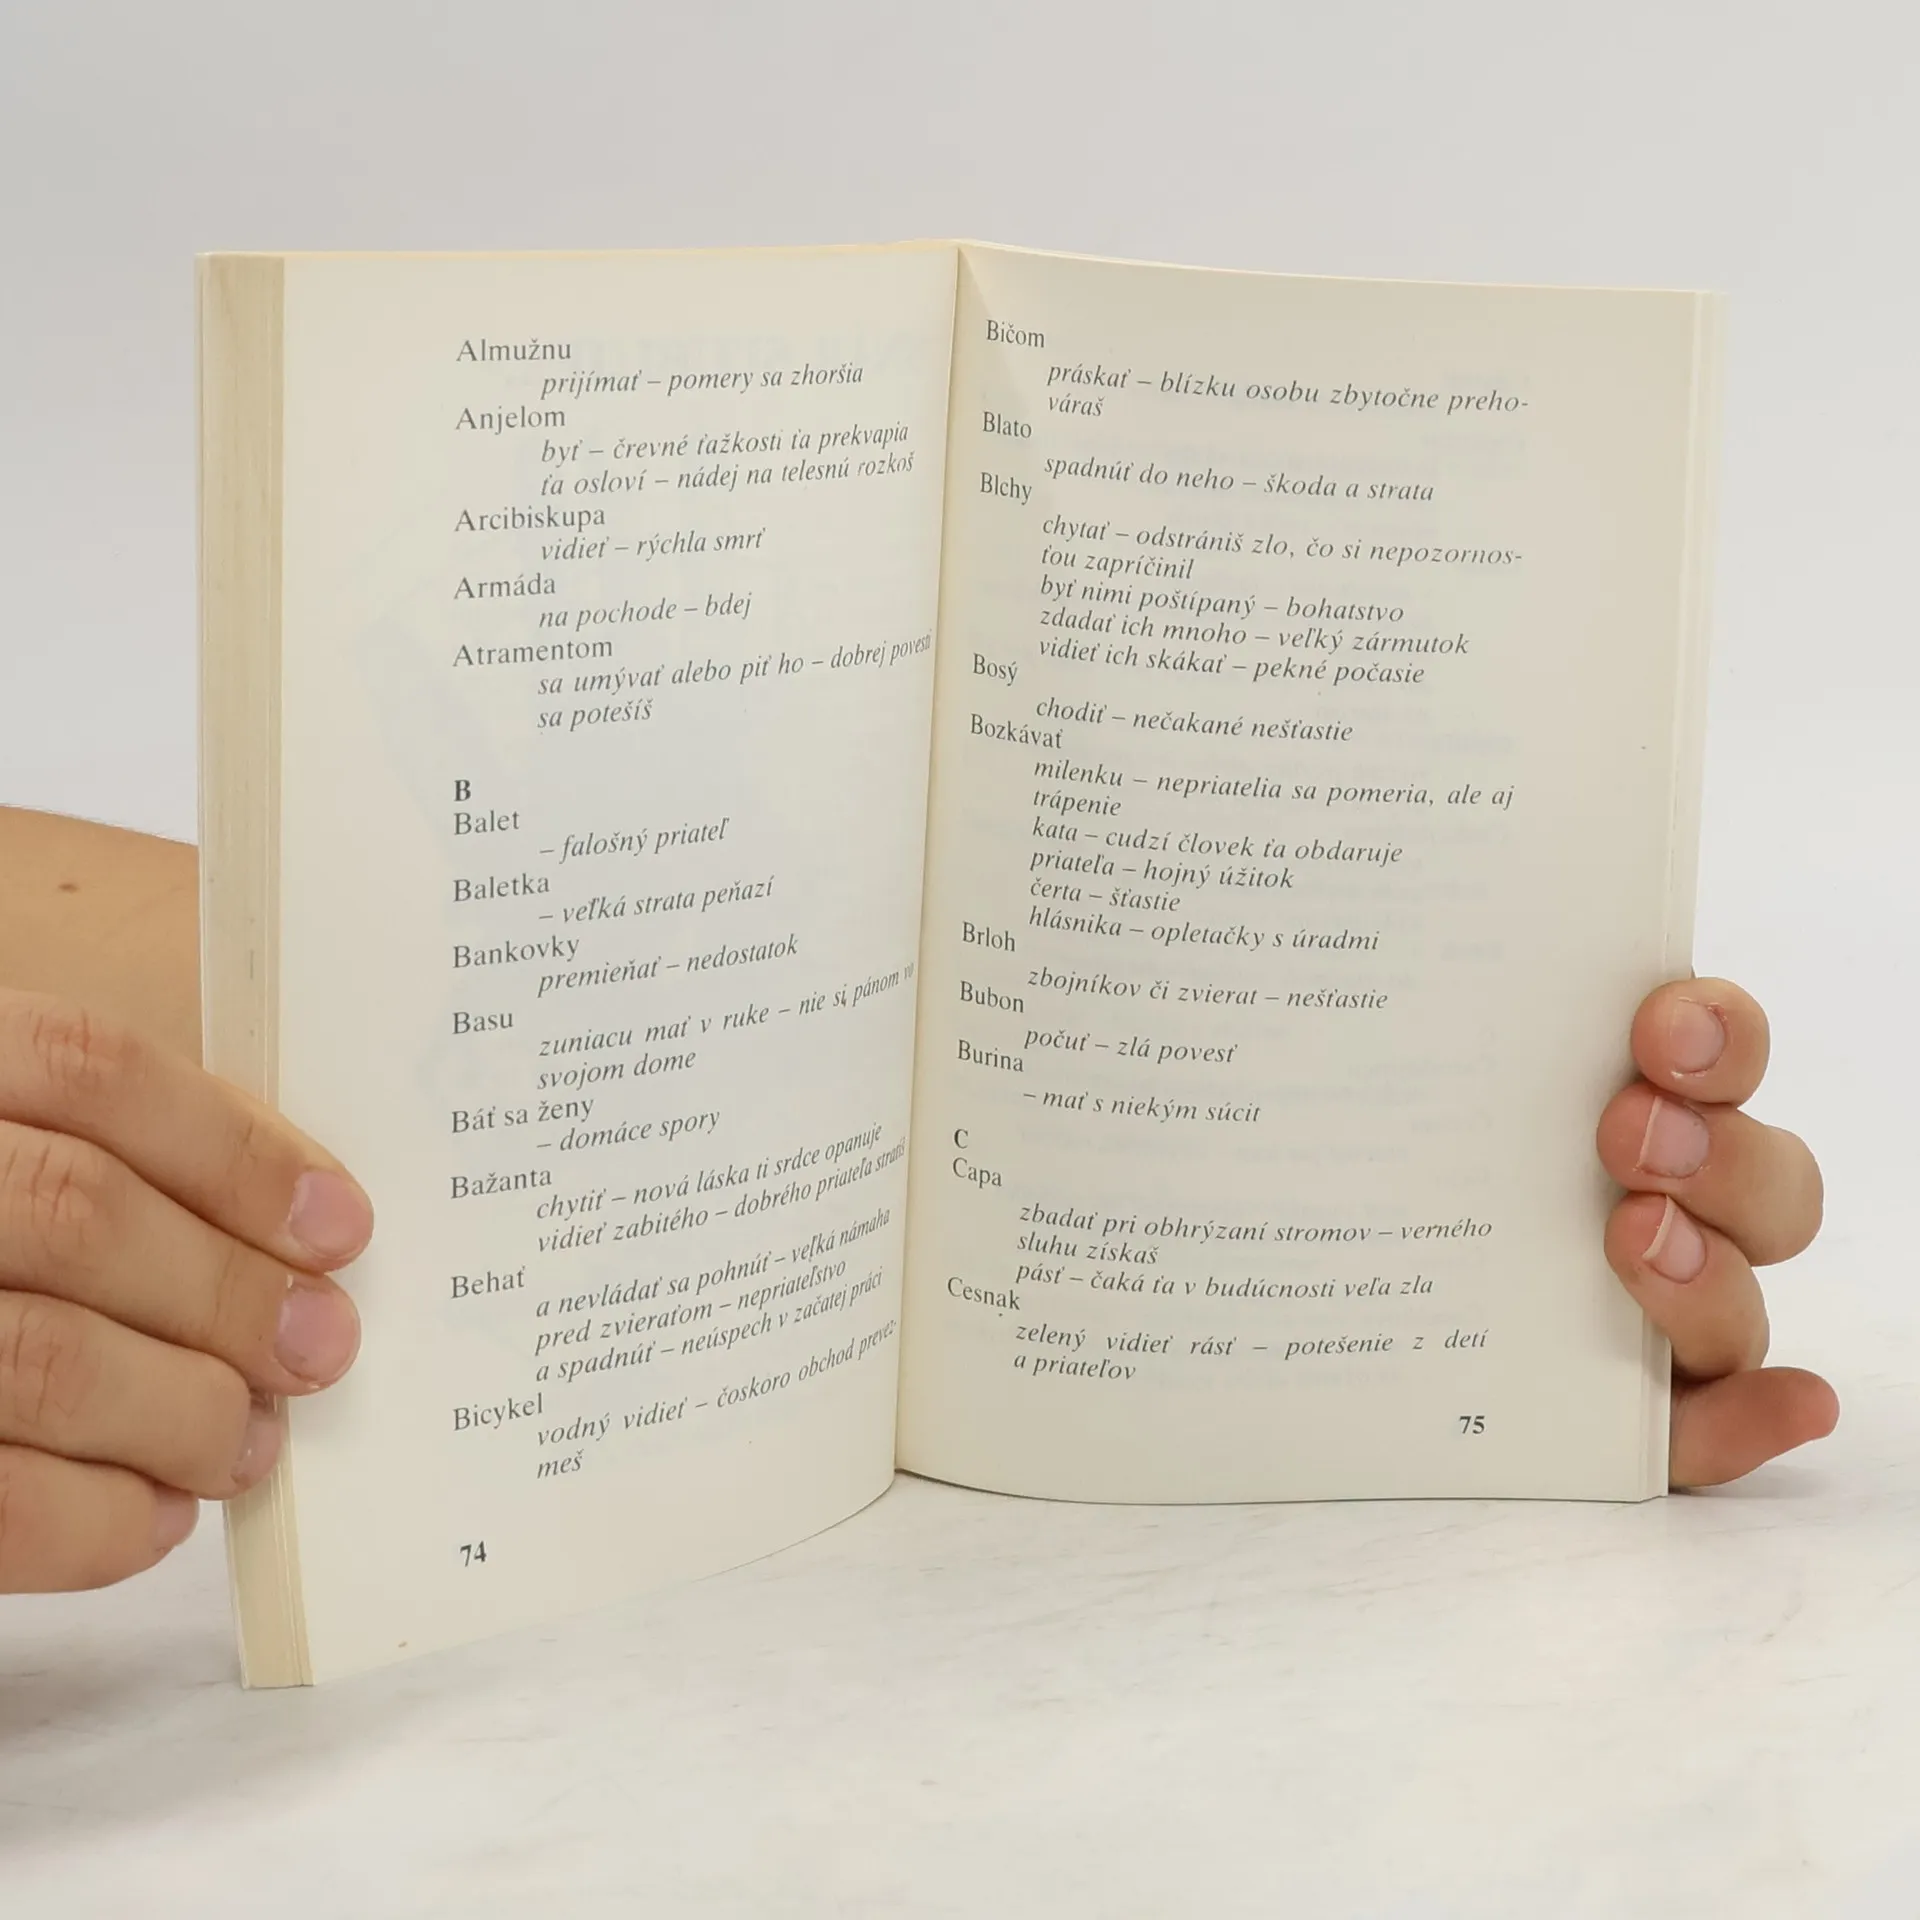 Almužnu
prijímať – pomery sa zhoršia
Anjelom
byť – črevné ťažkosti ťa prekvapia
ťa osloví – nádej na telesnú rozkoš
Arcibiskupa
vidieť – rýchla smrť
Armáda
na pochode – bdej
Atramentom
sa umývať alebo piť ho – dobrej povesti
sa potešíš
B
Balet
– falošný priateľ
Baletka
– veľká strata peňazí
Bankovky
premieňať – nedostatok
Basu
zuniacu mať v ruke – nie si pánom vo
svojom dome
Báť sa ženy
– domáce spory
Bažanta
chytiť – nová láska ti srdce opanuje
vidieť zabitého – dobrého priateľa stratíš
Behať
a nevládať sa pohnúť – veľká námaha
pred zvieraťom – nepriateľstvo
a spadnúť – neúspech v začatej práci
Bicykel
vodný vidieť – čoskoro obchod prevez-
meš
74
Bičom
práskať – blízku osobu zbytočne preho-
váraš
Blato
spadnúť do neho – škoda a strata
Blchy
chytať – odstrániš zlo, čo si nepozornos-
ťou zapríčinil
byť nimi poštípaný – bohatstvo
zdadať ich mnoho – veľký zármutok
vidieť ich skákať – pekné počasie
Bosý
chodiť – nečakané nešťastie
Bozkávať
milenku – nepriatelia sa pomeria, ale aj
trápenie
kata – cudzí človek ťa obdaruje
priateľa – hojný úžitok
čerta – šťastie
hlásnika – opletačky s úradmi
Brloh
zbojníkov či zvierat – nešťastie
Bubon
počuť – zlá povesť
Burina
– mať s niekým súcit
C
Capa
zbadať pri obhrýzaní stromov – verného
sluhu získaš
pásť – čaká ťa v budúcnosti veľa zla
Cesnak
zelený vidieť rásť – potešenie z detí
a priateľov
75